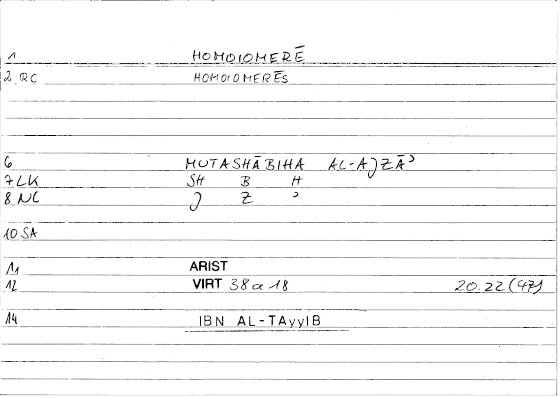 1 HOMOIOMERĒ
2 RC HOMOIOMERĒS
6 MUTASHĀBIHA AL-AJZĀʾ
7 LK SH B H
8 NC J Z ʾ
10 SA
11 ARIST
12 VIRT 38a18 20.22 (47)
14 IBN AL-TAyyIB